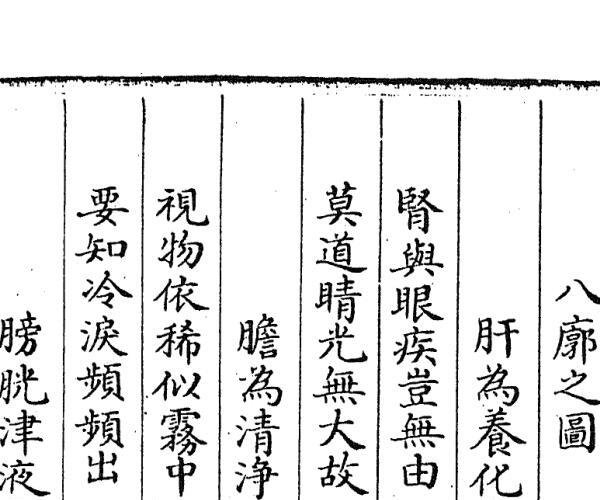 八廓之圖
肝為養化
腎與眼疾豈無由
莫道睛光無大故
膽為清淨
視物依稀似霧中
要知冷淚頻頻出
膀胱津液